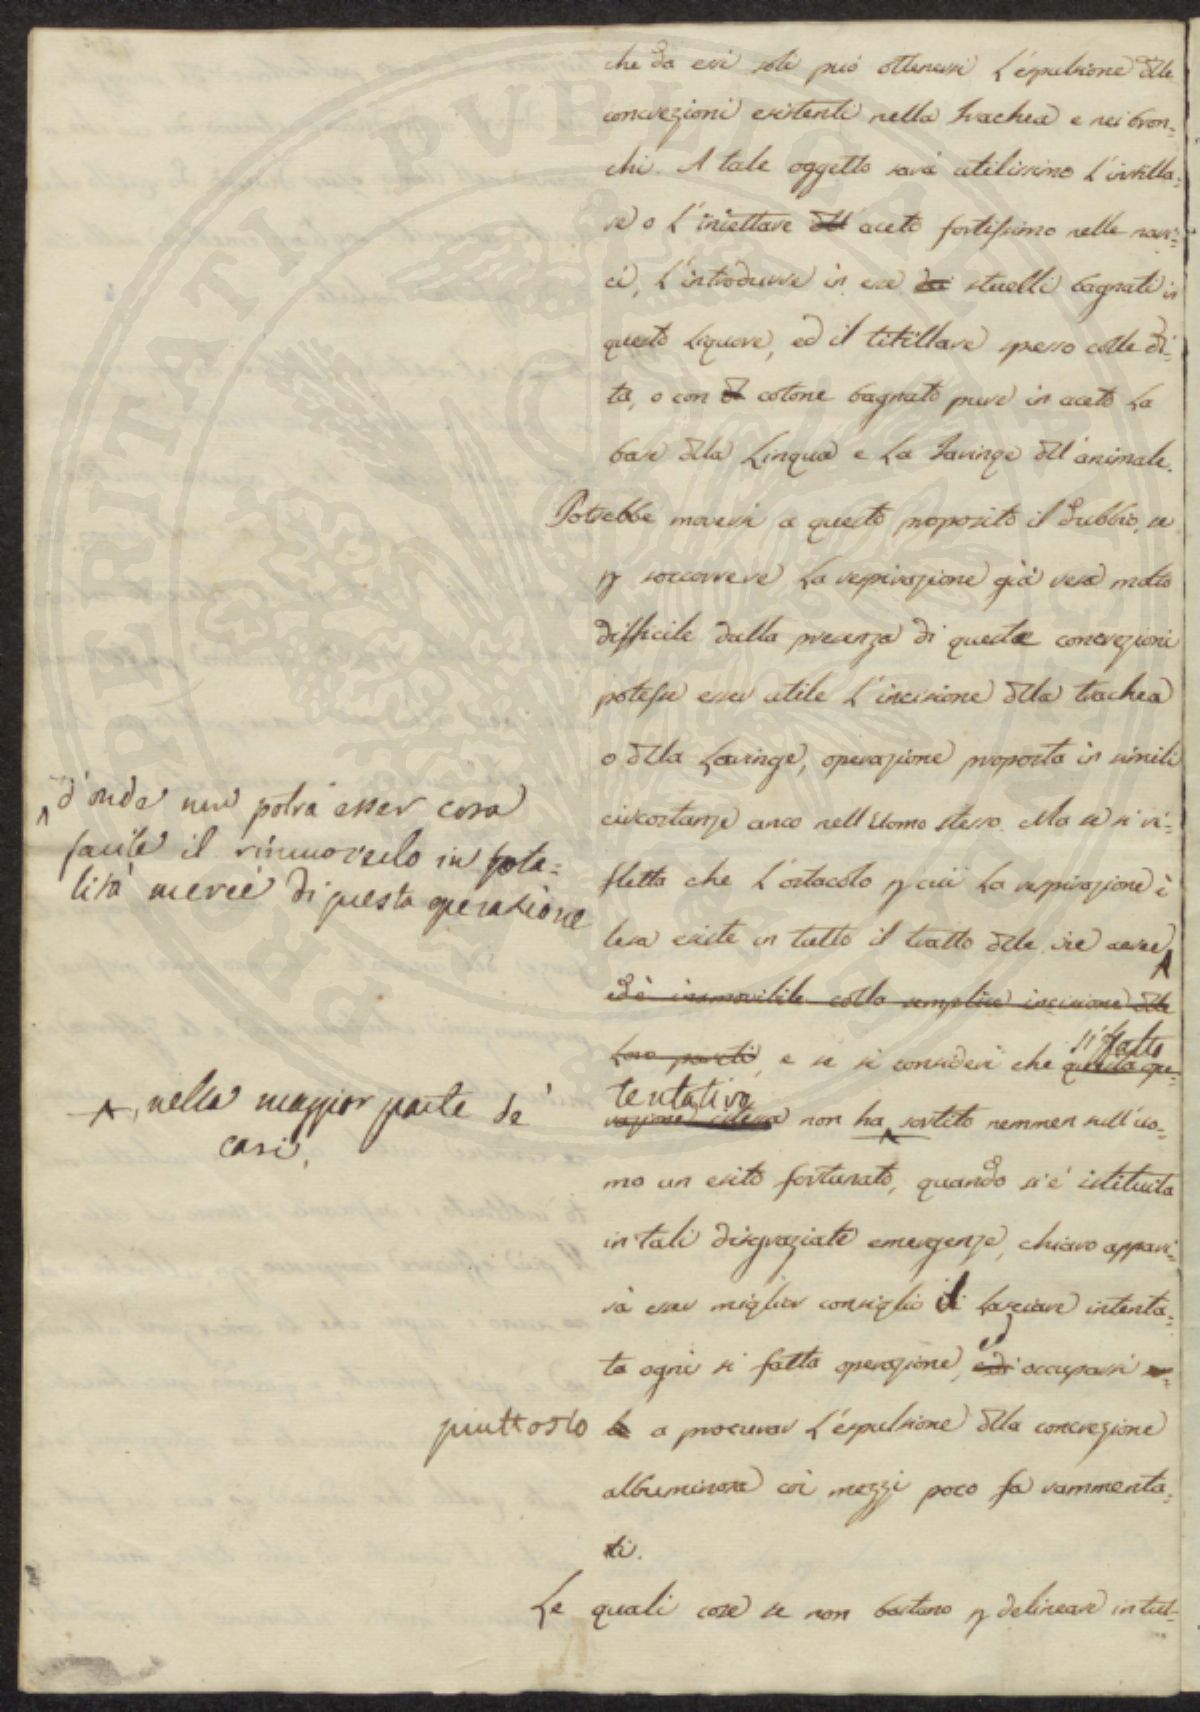 che da essi soli può ottenersi l'espulsione delle
concrezioni esistenti nella trachea e nei bron=
chi. A tale oggetto sarà utilissimo l'instilla=
re o l'iniettare dell' aceto fortissimo nelle nari=
ci, l'introdurre in esse dei stuelli bagnati in
questo liquore, ed il titillare spesso colle di=
ta, o con del cotone bagnato pure in aceto la
base della lingua e la laringe dell'animale.
Potrebbe moversi a questo proposito il dubbio, se
p soccorrere la respirazione già resa molto
difficile dalla presenza di queste concrezioni
potesse esser utile l'incisione della trachea
o della laringe, operazione proposta in simili
circostanze anco nell'Uomo stesso. Ma se si ri=
fletta che l'ostacolo p cui la respirazione è
lesa esiste in tutto il tratto delle vie aeree
d'onde non potrà esser cosa
facile il rimuoverlo in tota=
lità mercè di questa operazione
ed è inamovibile colla semplice incisione delle
loro pareti, e se si consideri che questa ope=
sì fatto
tentativo
razione istessa non ha sortito nemmen sull'uo=
, nella maggior parte de'
casi,
mo un esito fortunato, quando si è istituita
in tali disgraziate emergenze, chiaro appari=
rà esser miglior consiglio il lasciare intenta=
ta ogni sì fatta operazione, ed occuparsi
piuttosto a procurar l'espulsione della concrezione
albuminosa coi mezzi poco fa rammenta=
ti.
Le quali cose se non bastano p delineare in tut=